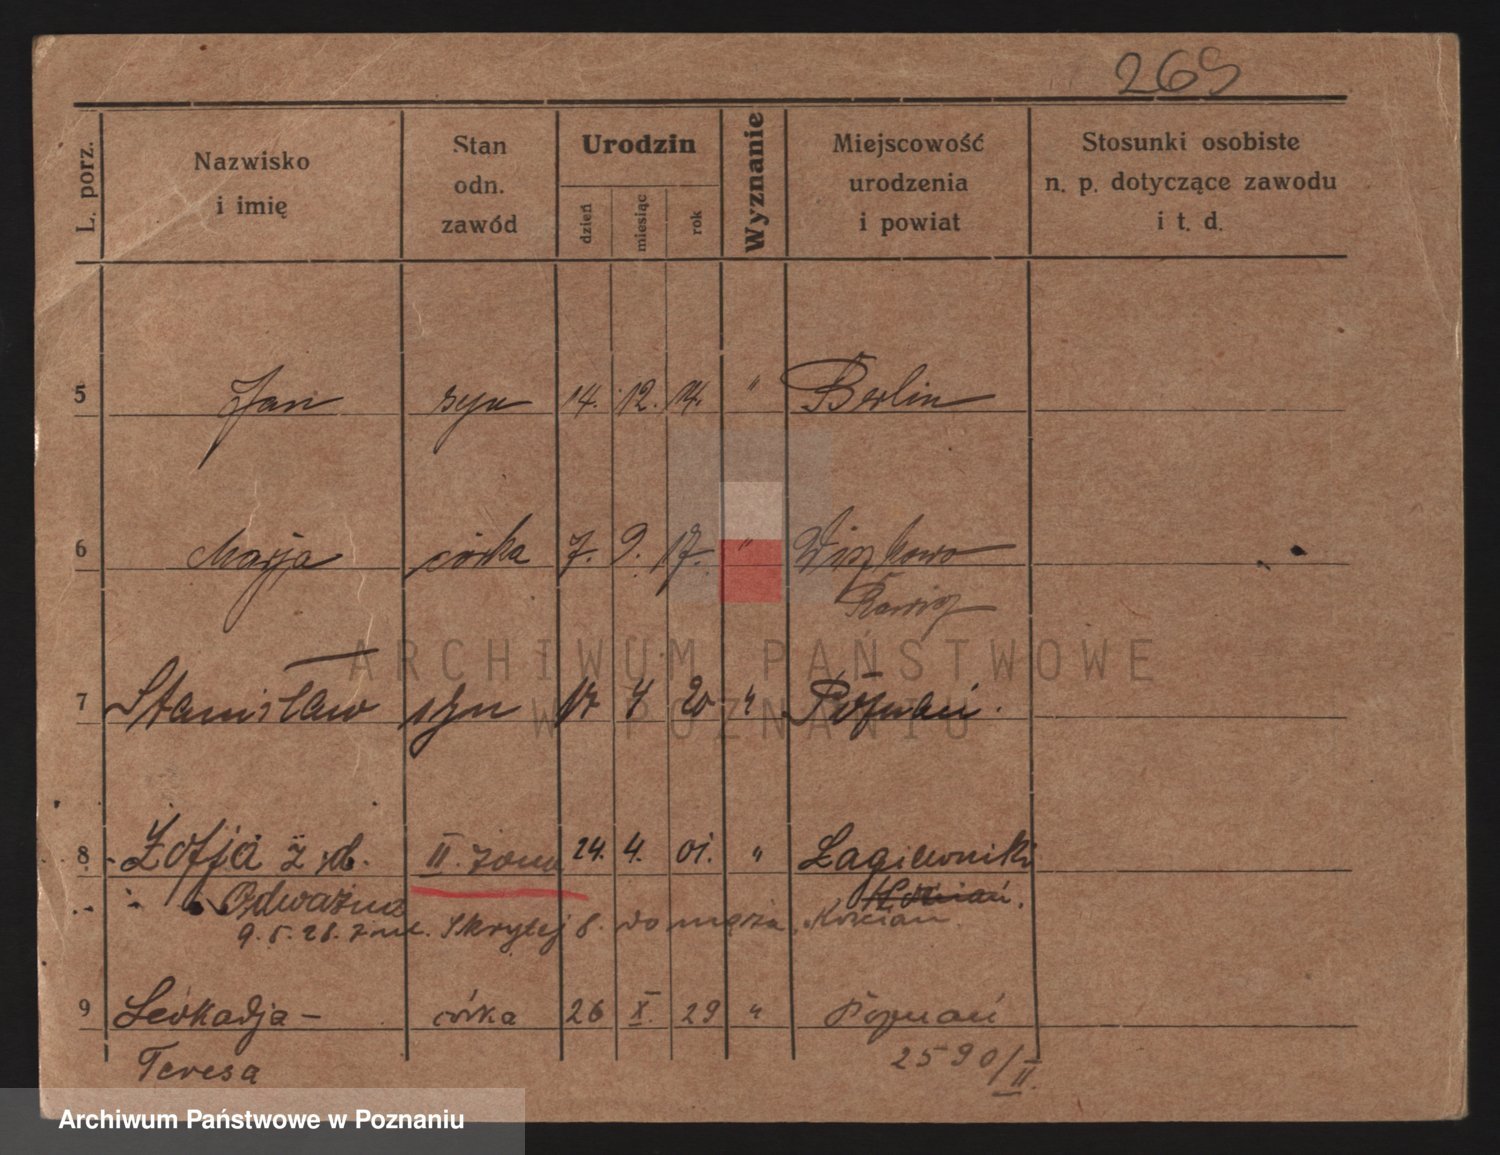 269
L. porz.
Nazwisko
i imię
Stan
odn.
zawód
Urodzin
dzień
miesiąc
rok
Wyznanie
Miejscowość
urodzenia
i powiat
Stosunki osobiste
n. p. dotyczące zawodu
i t. d.
5 Jan syn 14. 12. 14. " Berlin
6 Marja córka 7. 9. 17. "
7 Stanisław syn 17 4 20 " Poznań.
8 Zofja z d. II. żona 24. 4. 01. " Łagiewniki
Odważna
9. 5. 28. z ul. Skrytej 8. do męża. Kościan
9 Leokadja – córka 26 X. 29 " Poznań
Teresa 2590/II.
ARCHIWUM PAŃSTWOWE
W POZNANIU
Archiwum Państwowe w Poznaniu